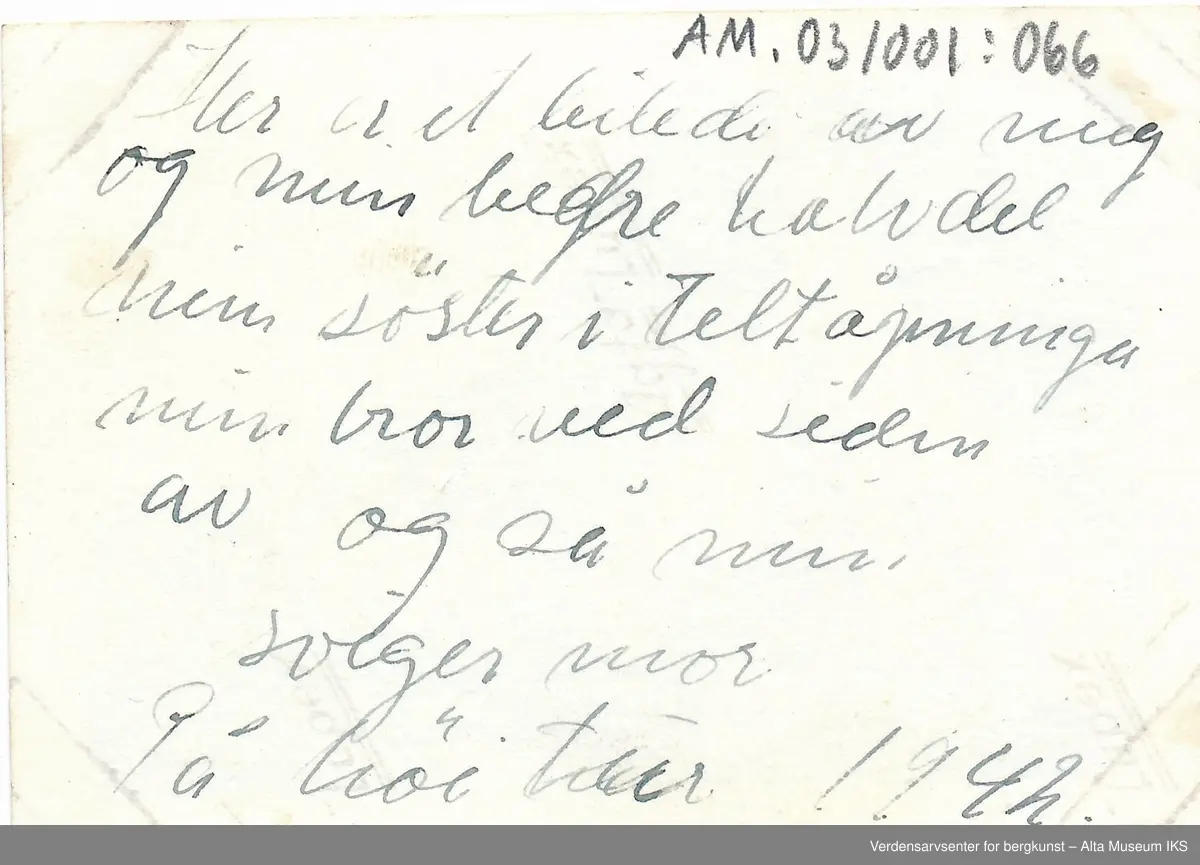 AM. 03/001:066
Her er et bilede av meg
og min bedre halvdel
min söster i teltåpninga
min bror ved siden
av og så min
sviger mor
På höi tur 1942.
Verdensarvsenter for bergkunst – Alta Museum IKS